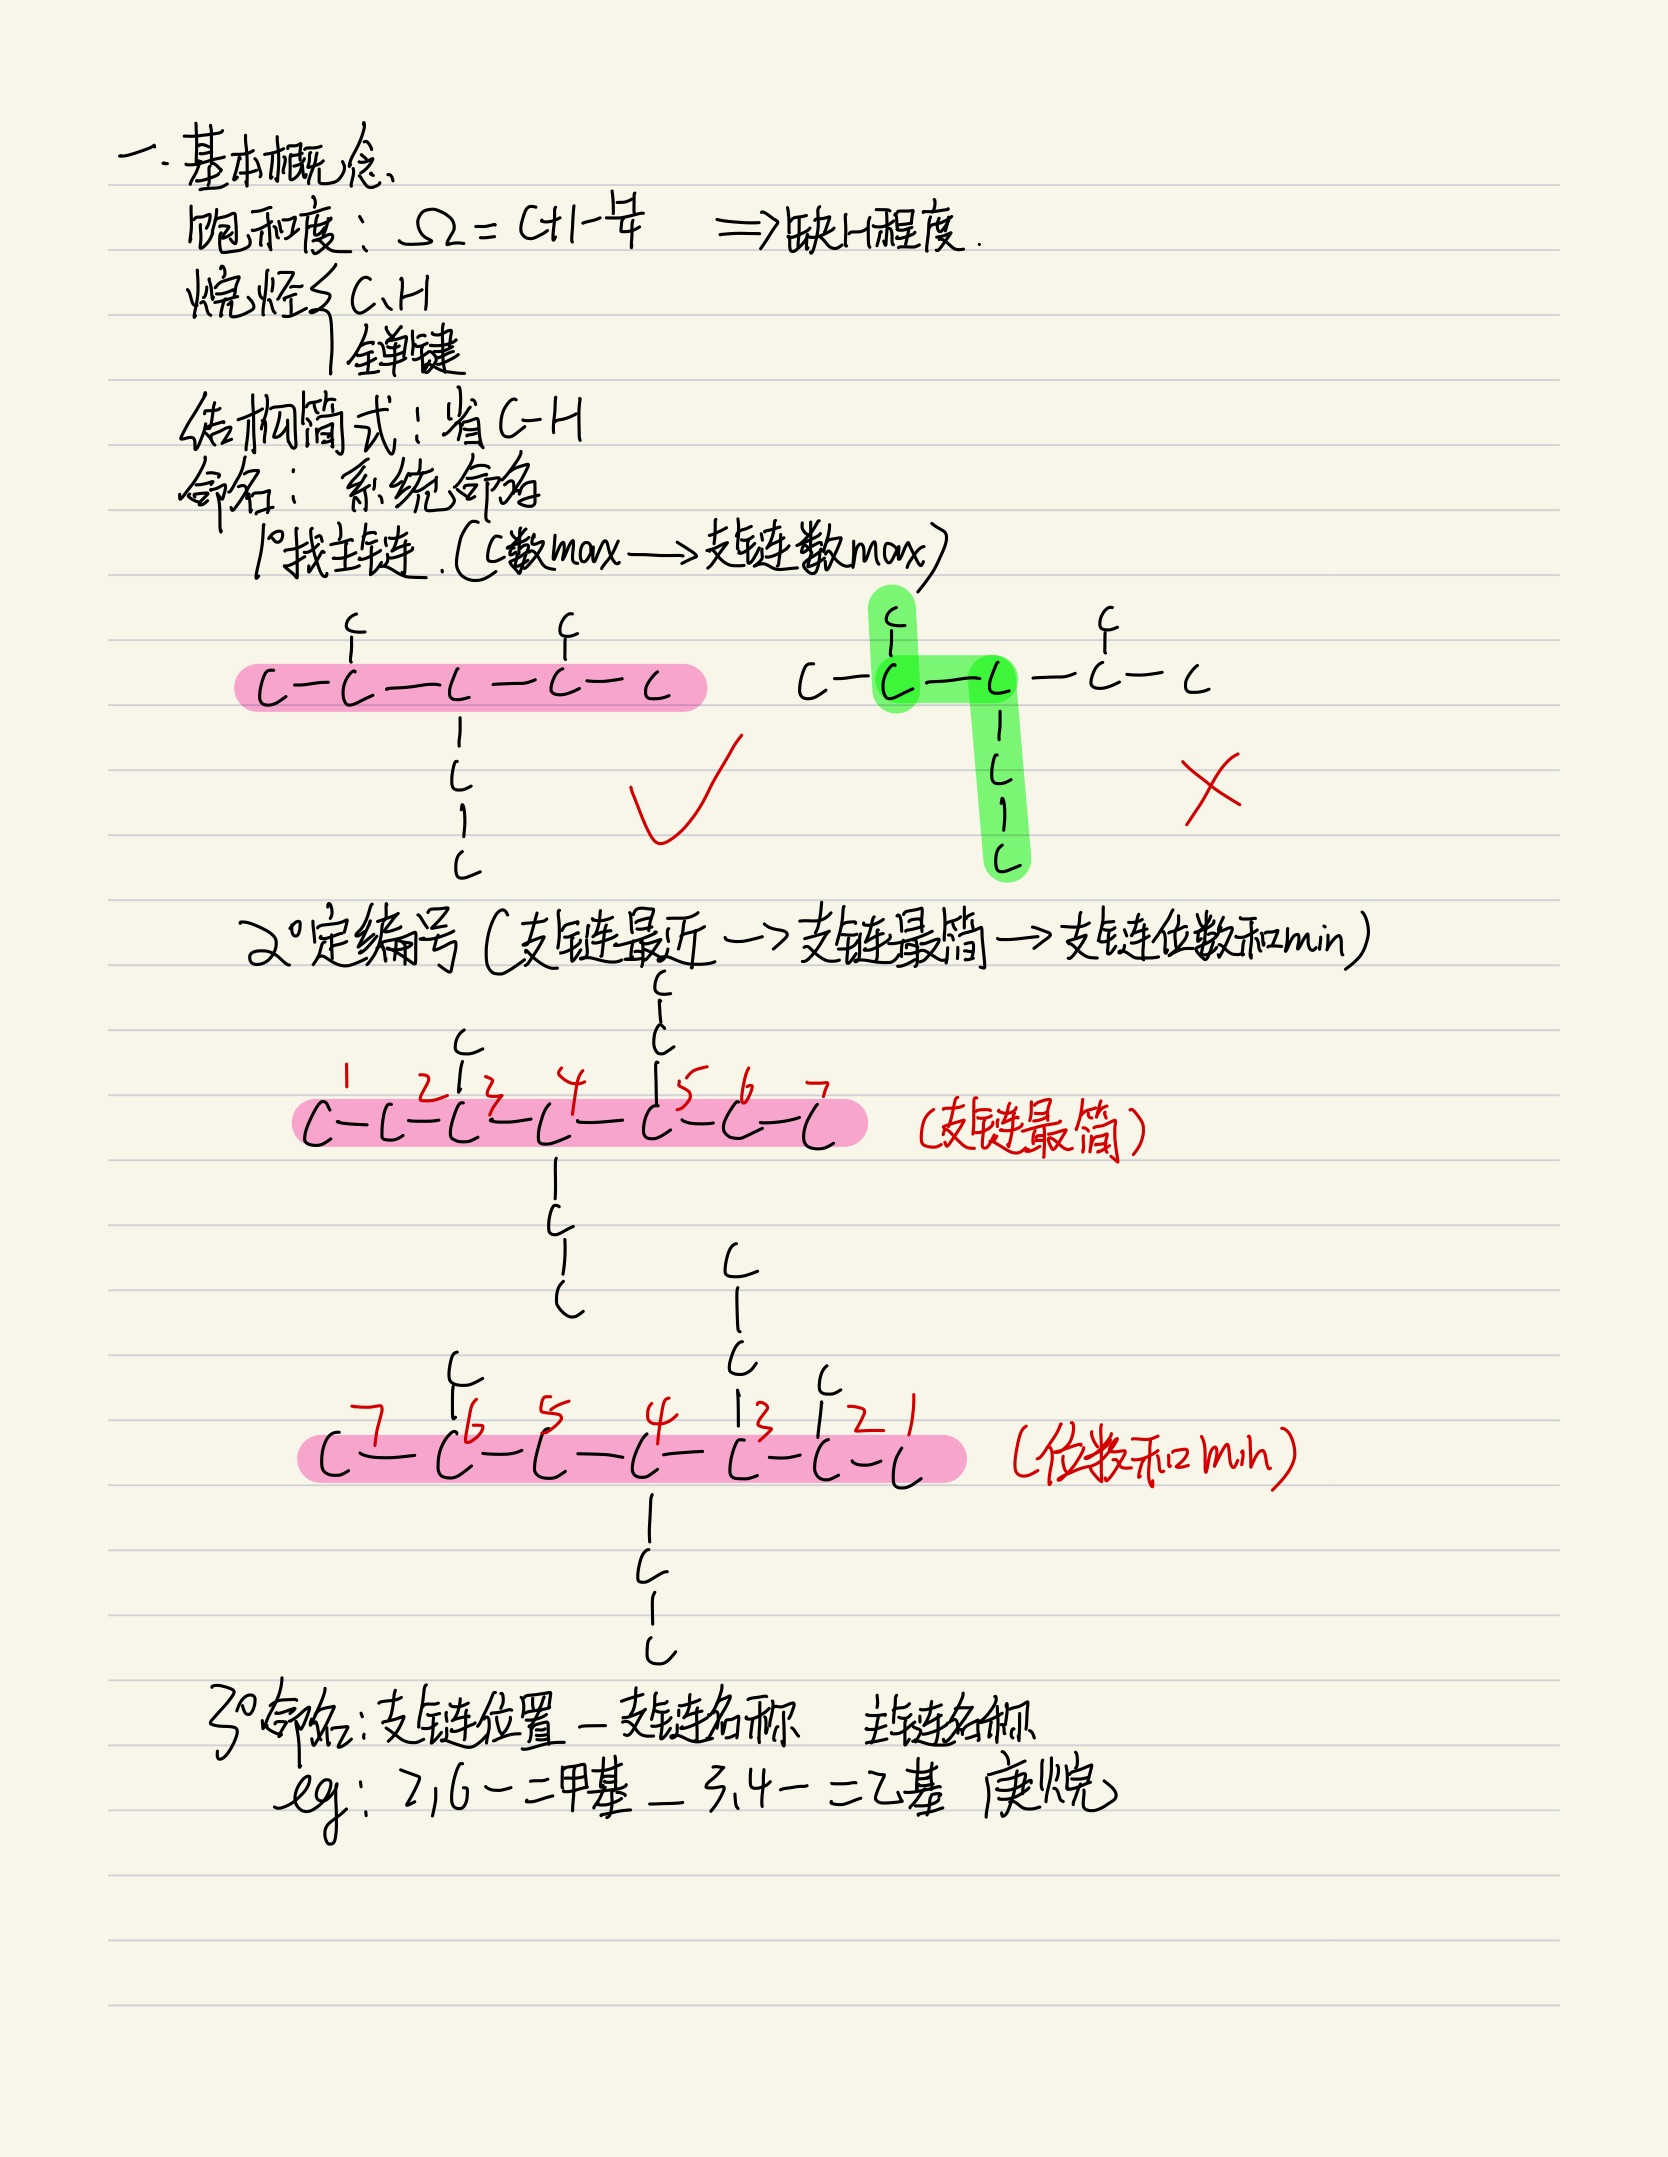 一. 基本概念、
饱和度: Ω = C+1-H/4 ⇒ 缺H程度.
烷烃{ C、H
全单键
结构简式: 省C-H
命名: 系统命名
1°找主链.(C数max→支链数max)
C C C C
C-C-C-C-C C-C-C-C-C
C C
C C
2°定编号(支链最近→支链最简→支链位数和min)
C
C C
1 2 3 4 5 6 7
C-C-C-C-C-C-C (支链最简)
C
C
C
C C C
7 6 5 4 3 2 1
C-C-C-C-C-C-C (位数和min)
C
C
3°命名: 支链位置-支链名称 主链名称
eg: 2,6-二甲基-3,4-二乙基 庚烷